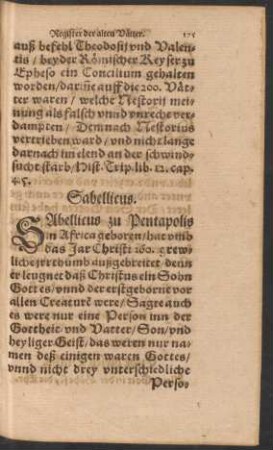 Register der alten Vätter. 175
auß befehl Theodosij vnd Valen-
tis / beyder Römischer Keyser zu
Epheso ein Concilium gehalten
worden / dariñe auff die 200. Vät-
ter waren / welche Nestorij mei-
nung als falsch vnnd vnrecht ver-
dampten / Demnach Nestorius
vertrieben ward / vnd nicht lange
darnach im elend an der schwind-
sucht starb / Hist. Trip. lib. 12. cap.
Sabellicus.
SAbellicus zu Pentapolis
in Africa geboren / hat vmb
das Jar Christi 260. grew-
liche jrrthumb außgebreitet deñ
er leugnet daß Christus ein Sohn
Gottes / vnnd der erstgeborne vor
allen Creaturē were / Sagte auch
es were nur eine Person inn der
Gottheit vnd Vatter / Son / vnd
heyliger Geist / das weren nur na-
men deß einigen waren Gottes /
vnnd nicht drey vnterschiedliche
Perso-